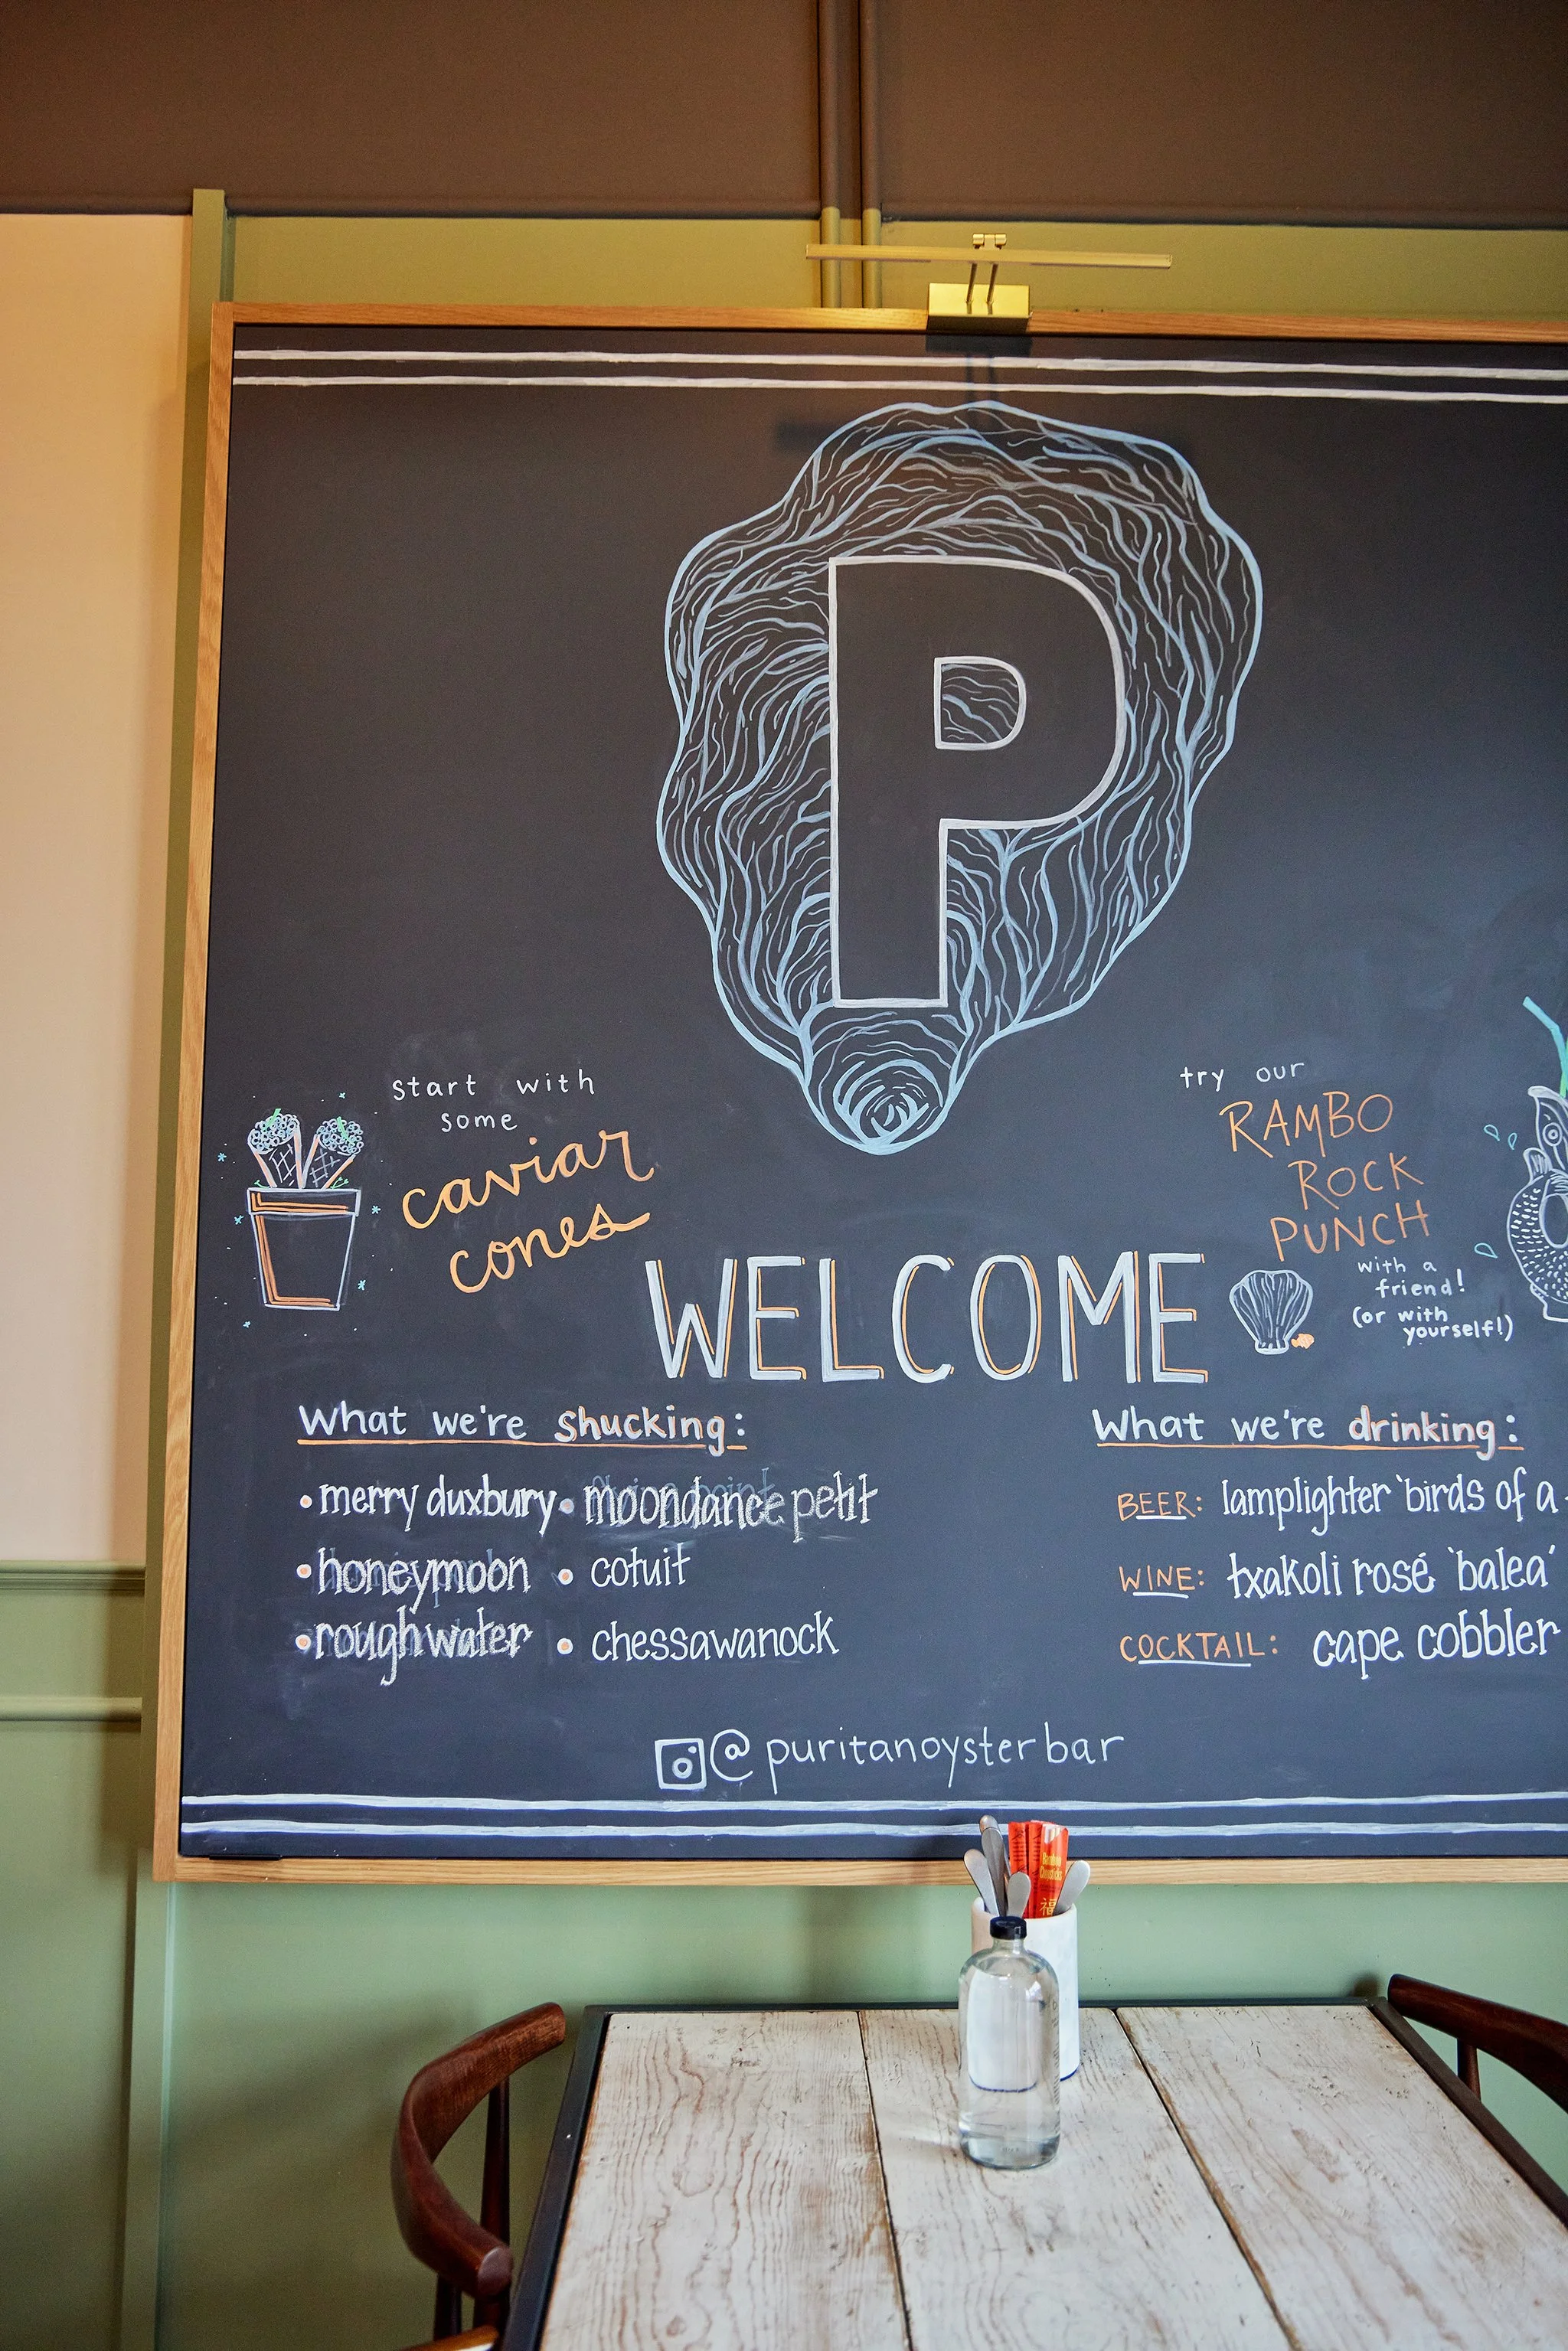 P
start with
some
caviar
cones
try our
RAMBO
ROCK
PUNCH
with a
friend!
(or with
yourself!)
WELCOME
What we're shucking:
• merry duxbury • moondance petit
• honeymoon • cotuit
• rough water • chessawanock
What we're drinking:
BEER: lamplighter 'birds of a
WINE: txakoli rosé 'balea'
COCKTAIL: cape cobbler
@puritanoysterbar
福